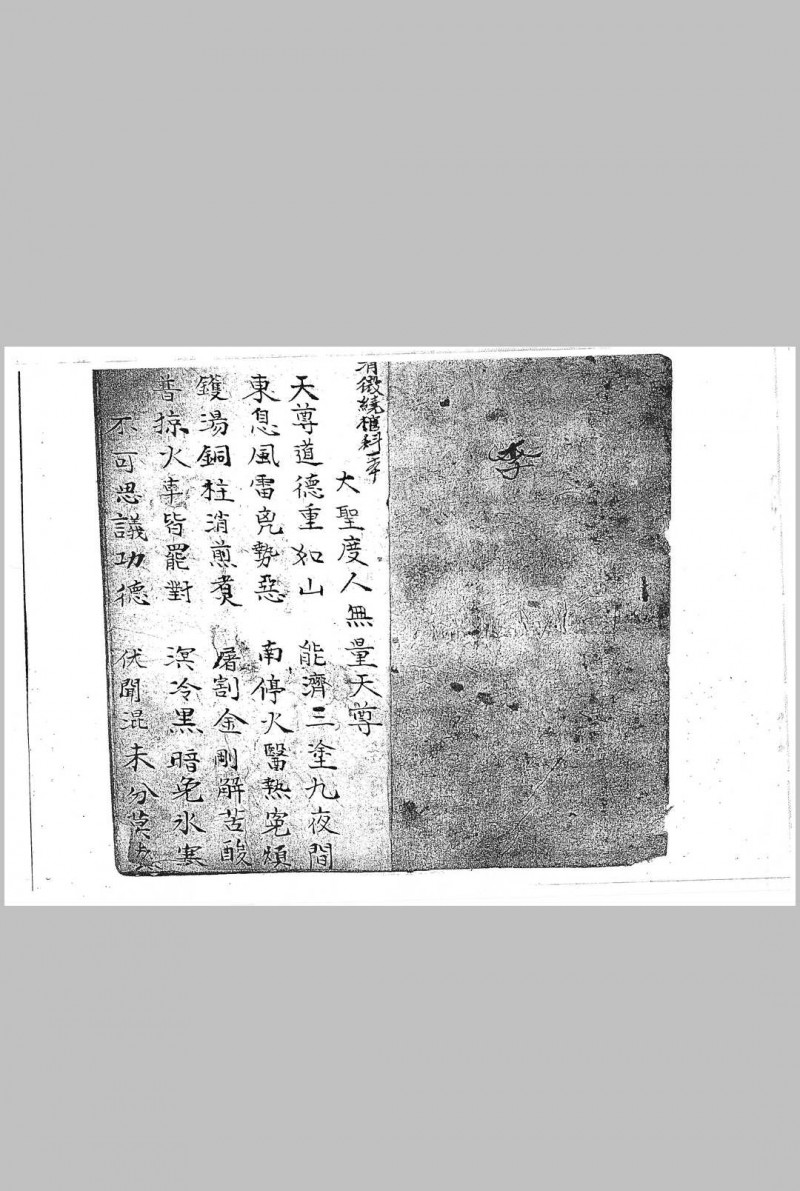 李
清微繞棺科
大聖度人無量天尊
天尊道德重如山 能濟三塗九夜間
東息風雷兇勢惡 南停火醫熱冤煩
鑊湯銅柱消煎煑 屠割金剛解苦酸
普掠火車皆罷對 溟冷黑暗免氷寒
不可思議功德 伏聞混未分莫